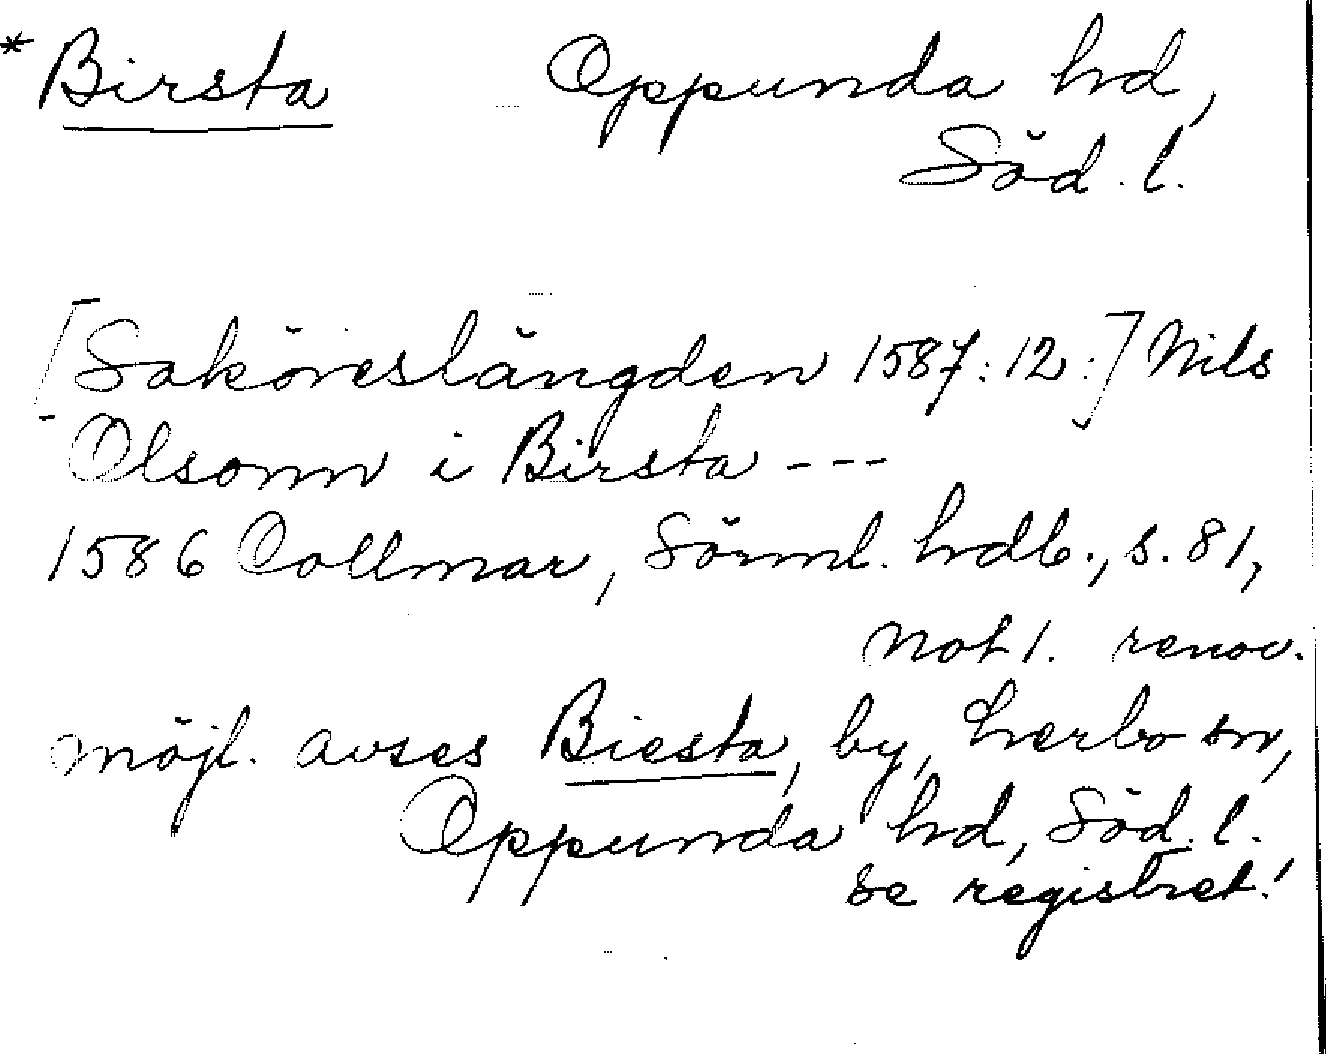 *Birsta Oppunda hd,
Söd. l.
[Saköreslängden 1587:12:] Nils
Olsonn i Birsta ---
1586 Collmar, Sörml. hdb., s. 81,
not 1. renov.
möjl. avses Biesta, by, Lerbo sn,
Oppunda hd, Söd. l.
se registret!